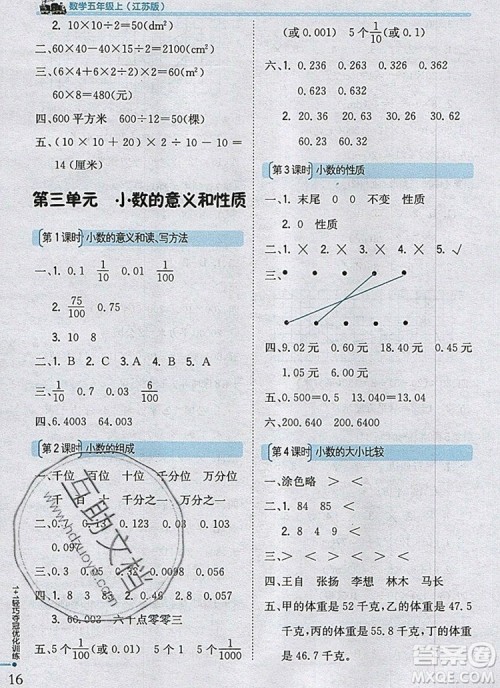 数学五年级上(江苏版)
2. 10×10÷2=50(个)
三、(6+2)×6=48(元)
(6+6+2)×6÷2=42(元)
60×8=480(元)
四、600平方米 600÷12=50(棵)
五、(10×10+20)×2÷10-10=
14(厘米)
第三单元 小数的意义和性质
第1课时 小数的意义和读、写方法
一、1. 0.1 1/10 0.01 1/100
2. 75/100 0.75
3. 10 8
二、1. B 2. C 3. A 4. A 5. B
三、1/10 0.7 0.03 6/100
四、4.003 64.003
第2课时 小数的组成
一、千位 百位 十位 千分位 万分位
千 百 十 千分之一 万分之一
二、0.9 0.15 0.23 0.5 0.009
0.057
三、0.3 0.05 0.32 0.4 0.04
0.432
四、0.602 六十点零零三
五、5个 0.15(或0.51或0.01)
(或0.001)
六、1. 0.236 0.263 0.326
0.362 0.623 0.632
2. 20.36 20.63 30.26
30.62 60.23 60.32
第3课时 小数的性质
一、1. 末尾 0 0 不变 性质
2. 0 1 0 4
二、1. × 2. × 3. × 4. √
三、
四、9.02元 0.60元 18.40元 0.45元
6.58元
五、0.500=0.5 13.040=13.04
六、200.640 200.6400
第4课时 小数的大小比较
一、涂色略 > <
二、1. 84 85 2. <
3. 4 9
三、> < < > < <
四、王自 张扬 李想 林木 马长
五、甲的体重是52千克,乙的体重是
51千克,丙的体重是55千克。
1+1轻巧夺冠优化训练
16
互助文档
www.hdzuoye.com
答案圈
MXQE.COM